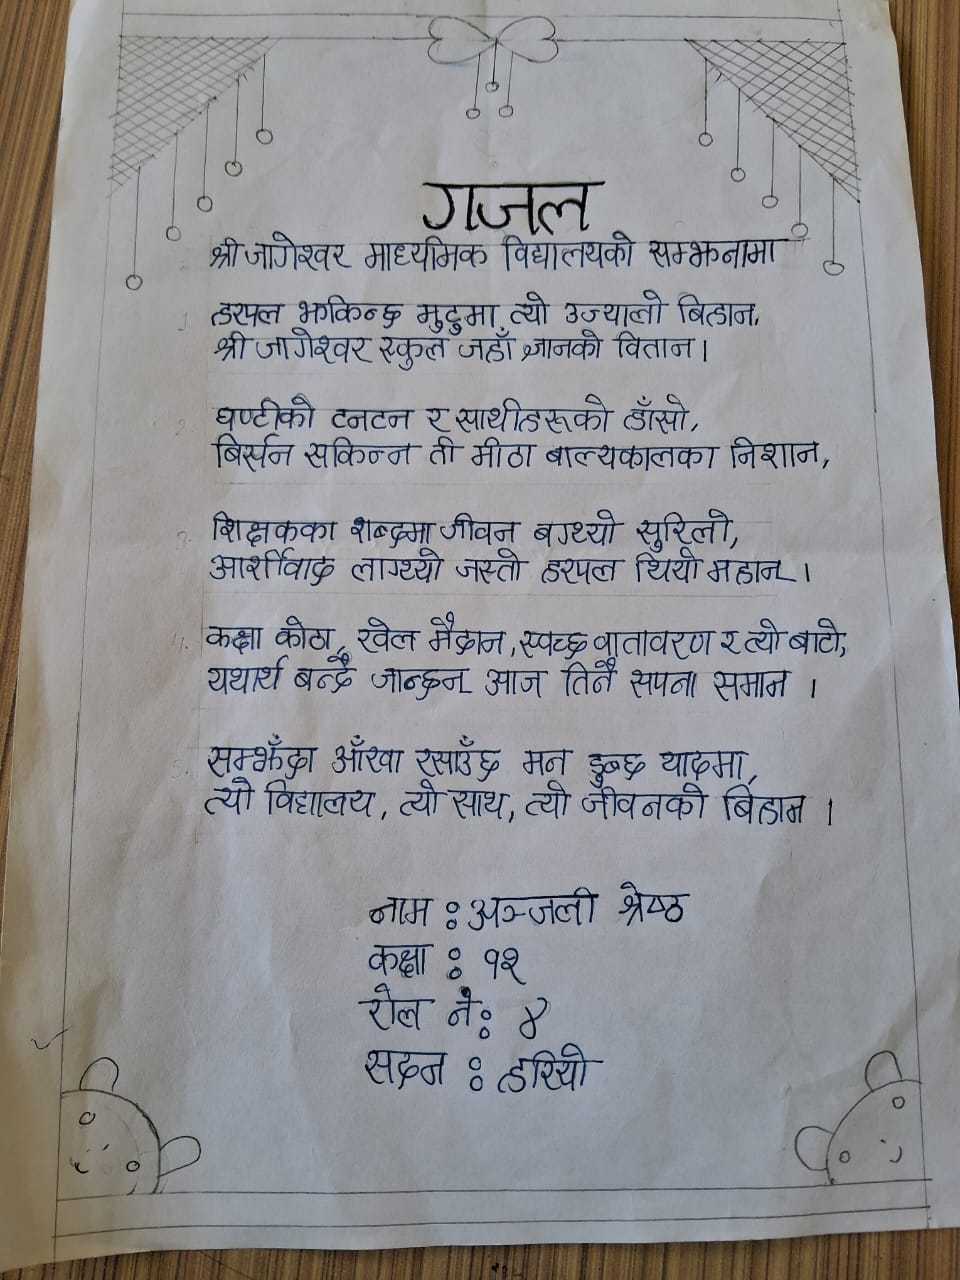 गजल
श्री जागेश्वर माध्यमिक विद्यालयको सम्झनामा
1. हरपल झल्किन्छ मुटुमा त्यो उज्यालो बिहान,
श्री जागेश्वर स्कुल जहाँ ज्ञानको वितान।
2. घण्टीको टनटन र साथीहरूको हाँसो,
बिर्सन सकिन्न ती मीठा बाल्यकालका निशान,
3. शिक्षकका शब्दमा जीवन बग्थ्यो सुरिलो,
आर्शीवाद लाग्थ्यो जस्तो हरपल थियो महान।
4. कक्षा कोठा, खेल मैदान, स्वच्छ वातावरण र त्यो बाटो,
यथार्थ बन्दै जान्छन् आज तिनै सपना समान।
5. सम्झँदा आँखा रसाउँछ मन डुब्छ यादमा,
त्यो विद्यालय, त्यो साथ, त्यो जीवनको बिहान।
नाम : अञ्जली श्रेष्ठ
कक्षा : १२
रोल नं: ४
सदन : हरियो